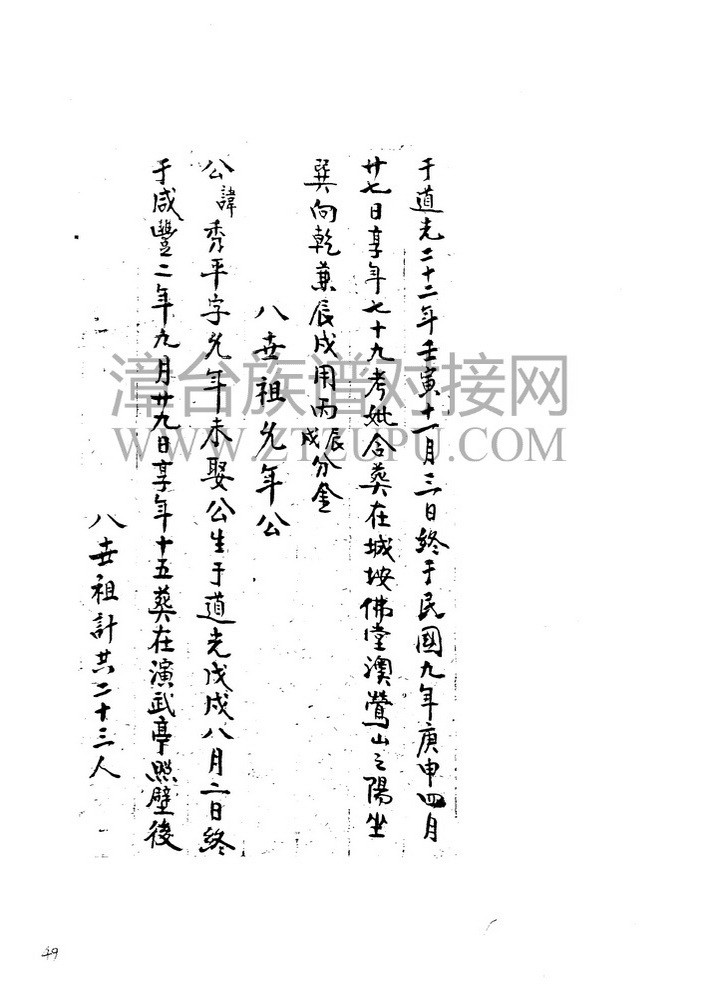 于道光二十二年壬寅十一月三日終于民國九年庚申四月
廿七日享年七十九考妣合葬在城垵佛堂澳鶯山之陽坐
巽向乾兼辰戌用丙辰丙戌分金
八世祖允年公
公諱秀平字允年未娶公生于道光戊戌八月二日終
于咸豐二年九月廿九日享年十五葬在演武亭照壁後
八世祖計共二十三人
漳台族谱对接网
WWW.ZTZUPU.COM
49